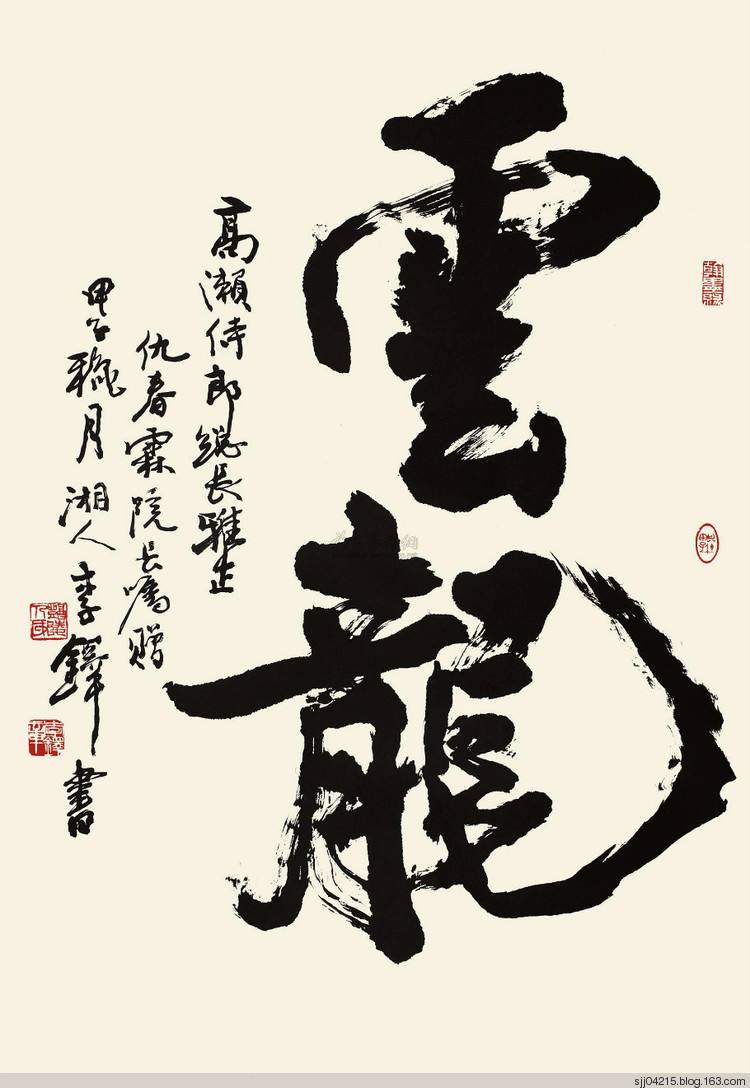 雲龍
高瀨侍郎總長雅正
仇春霖院長嘱赠
甲子穐月湘人李鐸書
sjj04215.blog.163.com